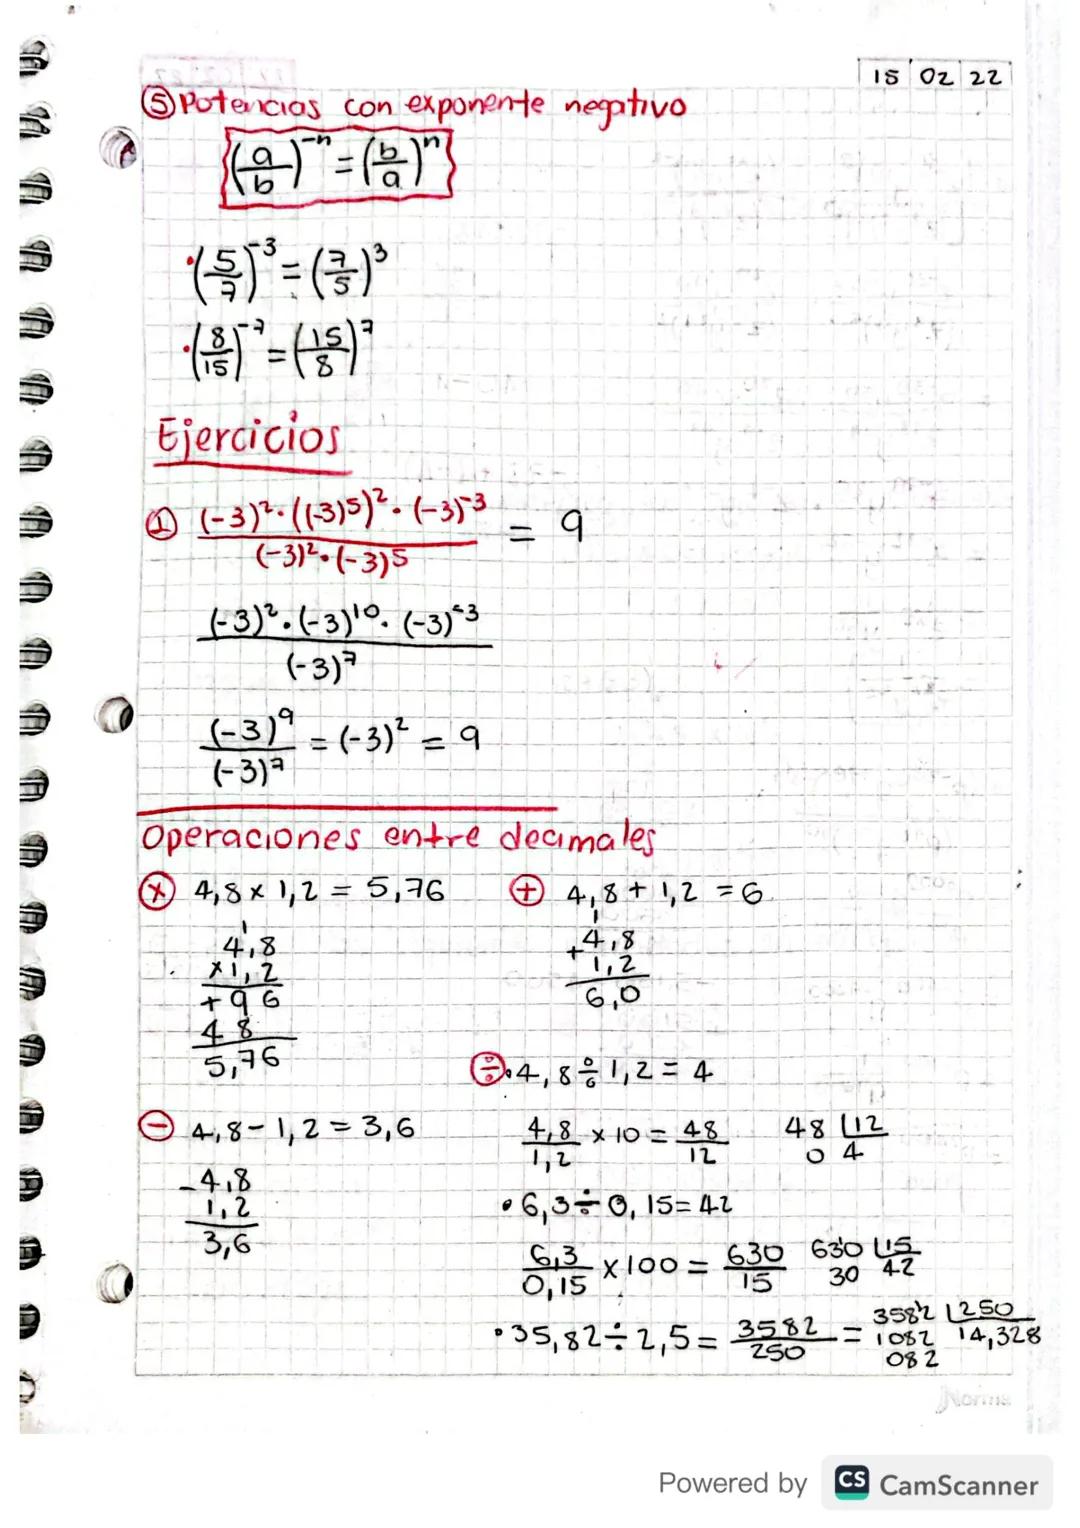 15 02 22
⑤ Potencias con exponente negativo
(a/b)⁻ⁿ = (b/a)ⁿ
• (5/7)⁻³ = (7/5)³
• (8/15)⁻⁷ = (15/8)⁷
Ejercicios
① (-3)²·((-3)5)²·(-3)⁻³ / (-3)²·(-3)5 = 9
(-3)²·(-3)¹⁰·(-3)⁻³ / (-3)⁷
(-3)⁹ / (-3)⁷ = (-3)² = 9
Operaciones entre decimales
ⓧ 4,8 x 1,2 = 5,76
1
4,8
x1,2
+ 9 6
4 8
5,76
⊕ 4,8 + 1,2 = 6
1
+4,8
1,2
6,0
⊖ 4,8 - 1,2 = 3,6
-4,8
1,2
3,6
÷ • 4,8 ÷ 1,2 = 4
4,8/1,2 x 10 = 48/12
48 |12
0 4
• 6,3 ÷ 0,15 = 42
6,3/0,15 x 100 = 630/15
630 |15
30 42
• 35,82 ÷ 2,5 = 3582/250 =
3582 |250
1082 14,328
082
Norma
Powered by CS CamScanner